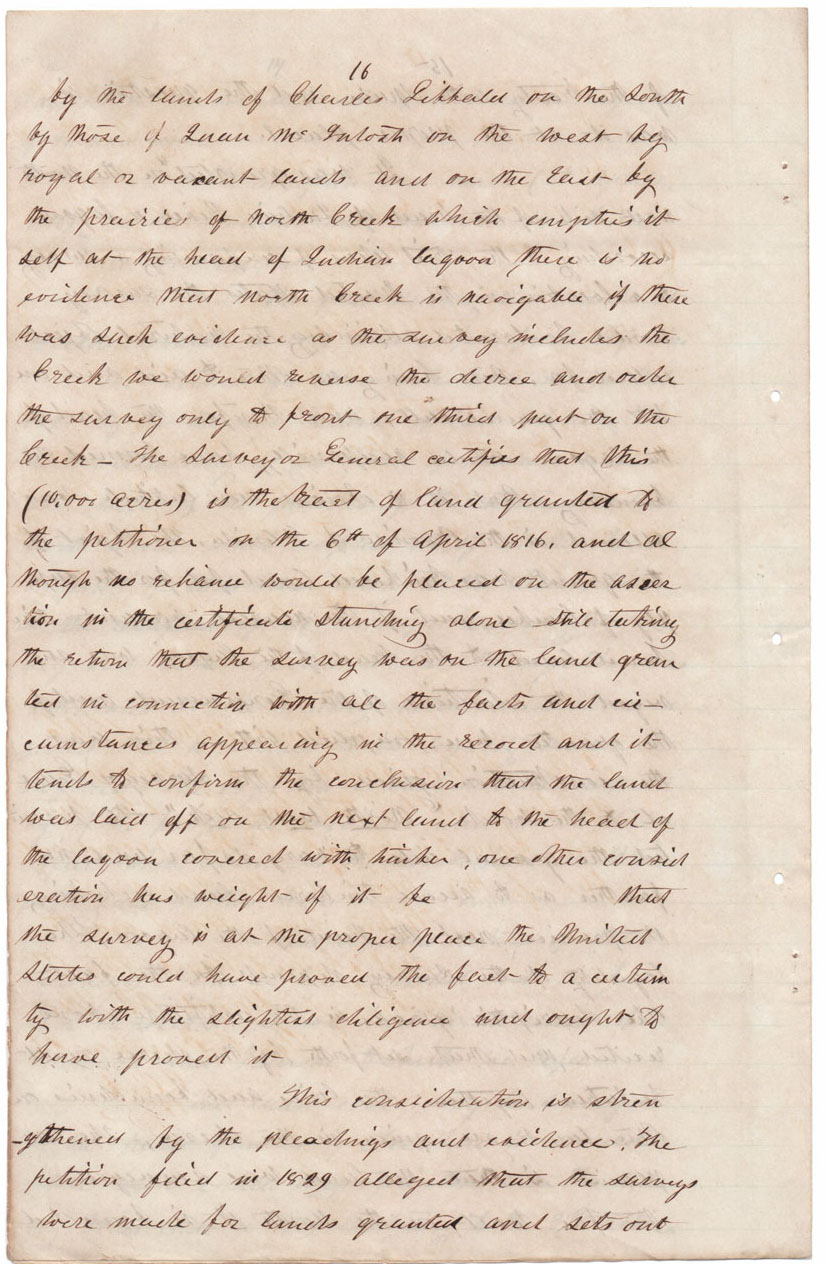 16
by the lands of Charles Sibbald on the South
by those of Juan Mc Intosh on the west by
royal or vacant lands and on the East by
the prairies of North Creek which empties it
self at the head of Indian lagoon there is no
evidence that north Creek is navigable if there
was such evidence as the survey includes the
Creek we would reverse the decree and order
the survey only to front one third part on the
Creek – The Surveyor General certifies that this
(10,000 acres) is the tract of land granted to
the petitioner on the 6th of April 1816, and al
though no reliance would be placed on the asser
tion in the certificate standing alone still taking
the return that the survey was on the land gran
ted in connection with all the facts and cir–
cumstances appearing in the record and it
tends to confirm the conclusion that the land
was laid off on the next land to the head of
the lagoon covered with timber, one other consid
eration has weight if it be that
the survey is at the proper place the United
States could have proved the fact to a certain
ty with the slightest diligence and ought to
have proved it
This consideration is stren
–gthened by the pleadings and evidence. The
petition filed in 1829 alleged that the surveys
were made for lands granted and sets out